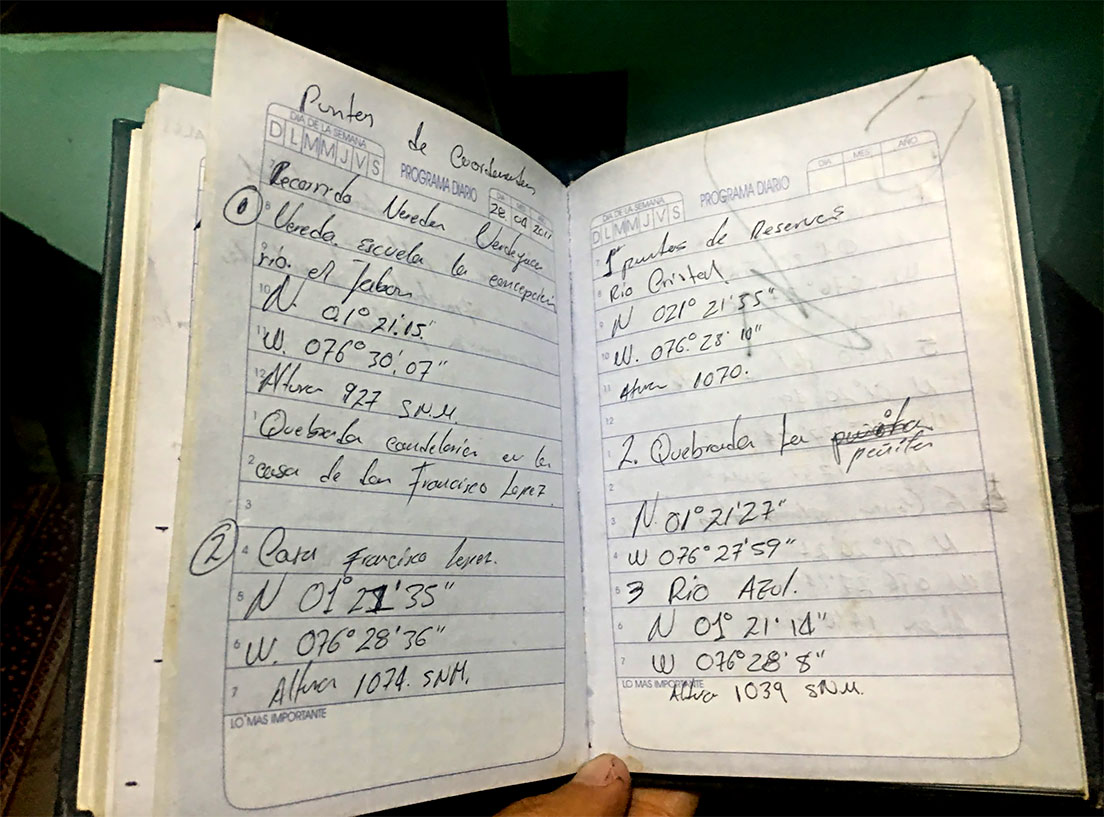 Puntos de Coordenadas
DIA DE LA SEMANA
D L M M J V S
PROGRAMA DIARIO
DIA MES AÑO
28 04 2011
7 Recorrido Vereda Verdeyaco
1 8 Vereda. escuela la concepción
9 rio. el Jabon
10 N. 01° 21'.15"
11 W. 076° 30', 07"
12 Altura 927 S.N.M
1 Quebrada candelaria en la
2 casa de Don Francisco Lopez.
3
2 4 Casa Francisco Lopez.
5 N 01° 21' 35"
6 W. 076° 28' 36"
7 Altura 1074. SNM.
LO MAS IMPORTANTE
DIA DE LA SEMANA
D L M M J V S
PROGRAMA DIARIO
DIA MES AÑO
7 1 puntos de Reservas
8 Rio Cristal
9 N 021° 21' 55"
10 W. 076° 28' 10"
11 Altura 1070.
12
1 2. Quebrada La
peñita
2
3 N. 01° 21' 27"
4 W 076° 27' 59"
5 3 Rio AZul.
6 N 01° 21' 14"
7 W 076° 28' 8"
LO MAS IMPORTANTE
Altura 1039 SNM.